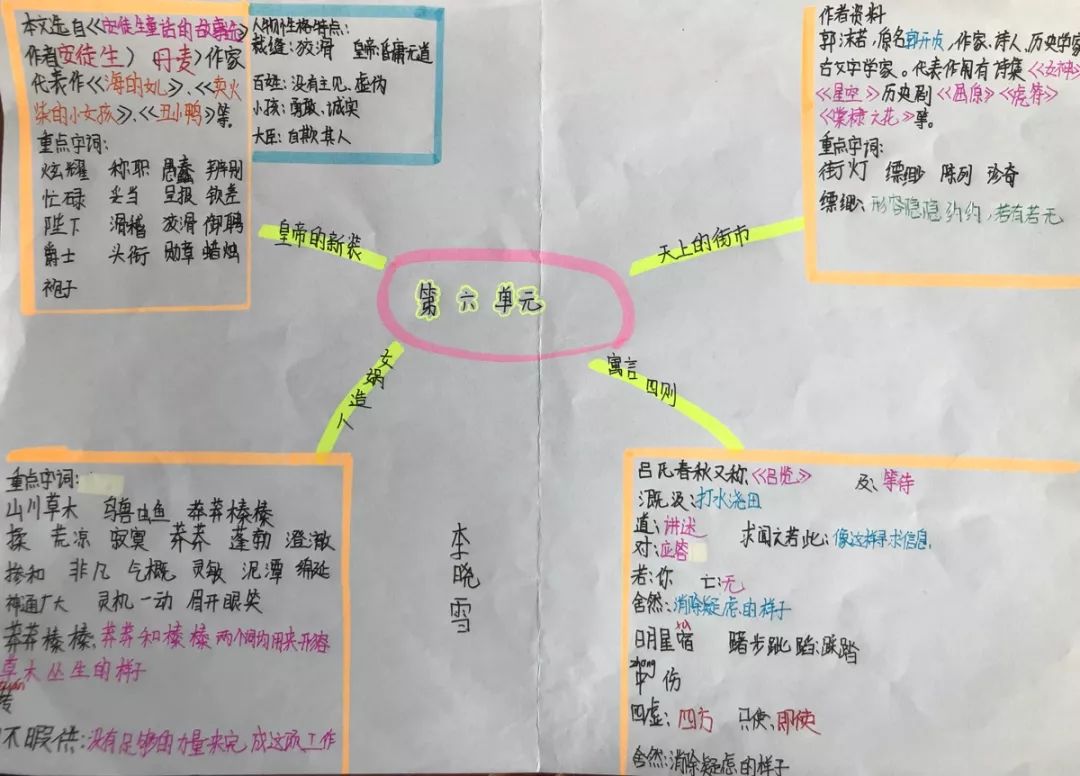 本文选自《安徒生童话的故事选》
作者安徒生）丹麦）作家
代表作《海的女儿》、《卖火
柴的小女孩》、《丑小鸭》等。
重点字词:
炫耀 称职 愚蠢 辨别
忙碌 妥当 呈报 钦差
陛下 滑稽 狡滑 御聘
爵士 头衔 勋章 蜡烛
袍子
人物性格特点:
裁缝: 狡滑 皇帝昏庸无道
百姓: 没有主见、虚伪
小孩: 勇敢、诚实
大臣: 自欺其人
皇帝的新装
作者资料
郭沫若,原名郭开贞,作家、诗人、历史学家
古文字学家。代表作闹有诗集《女神》
《星空》历史剧《屈原》《虎符》
《棠棣之花》等。
重点字词:
街灯 缥缈 陈列 珍奇
缥缈: 形容隐隐约约,若有若无
天上的街市
第六单元
女娲造人
寓言四则
重点字词:
山川草木 鸟兽虫鱼 莽莽榛榛
揉 荒凉 寂寞 莽莽 蓬勃 澄澈
掺和 非凡 气概 灵敏 泥潭 绵延
神通广大 灵机一动 眉开眼笑
莽莽榛榛: 莽莽和榛榛两个词均用来形容
草木丛生的样子
不暇供: 没有足够的力量来完成这项工作
李晓雪
吕氏春秋又称《吕览》 及: 等待
溉汲: 打水浇田
道: 讲述 求闻之若此: 像这样寻求信息.
对: 应答
若: 你 亡: 无
舍然: 消除疑虑的样子
xiù
日月星宿 躇步跐蹈: 踩踏
zhòng
中伤
四虚: 四方 只使: 即使
舍然: 消除疑虑的样子